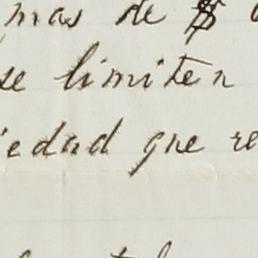 mas de $
se limiten
iedad que re